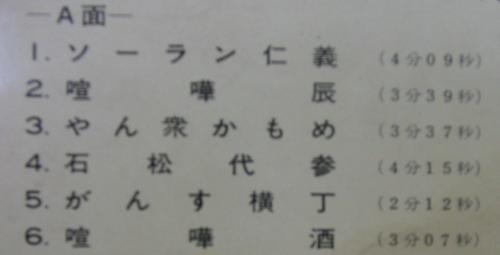 —A面—
1. ソーラン仁義 (4分09秒)
2. 喧嘩辰 (3分39秒)
3. やん衆かもめ (3分37秒)
4. 石松代参 (4分15秒)
5. がんす横丁 (2分12秒)
6. 喧嘩酒 (3分07秒)